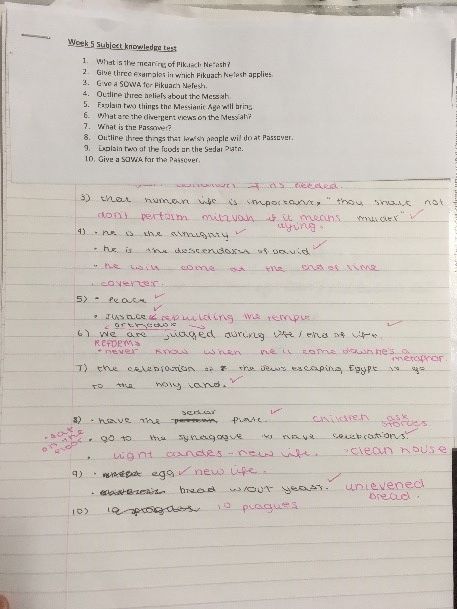 Week 5 Subject knowledge test
1. What is the meaning of Pikuach Nefesh?
2. Give three examples in which Pikuach Nefesh applies.
3. Give a SOWA for Pikuach Nefesh.
4. Outline three beliefs about the Messiah.
5. Explain two things the Messianic Age will bring
6. What are the divergent views on the Messiah?
7. What is the Passover?
8. Outline three things that Jewish people will do at Passover.
9. Explain two of the foods on the Sedar Plate.
10. Give a SOWA for the Passover.
if its needed.
3) that human life is important, "thou shalt not
dont perform mitzvah if it means murder"
dying.
4) • he is the almighty
• he is the descendant of david
• he will come at the end of time
5) • Peace
• Justice & rebuilding the temple
orthodox
6) we are judged during life / end of life
REFORM
• never know when he'll come down he's a
metaphor.
7) the celebration of the Jews escaping Egypt to go
to the holy land.
seder
8) • have the plate. children ask
stories
• go to the synagogue to have celebrations.
• light candles - new life. • clean house
9) • egg new life.
• bread w/out yeast. unlevened
bread.
10) 10 plagues 10 plagues